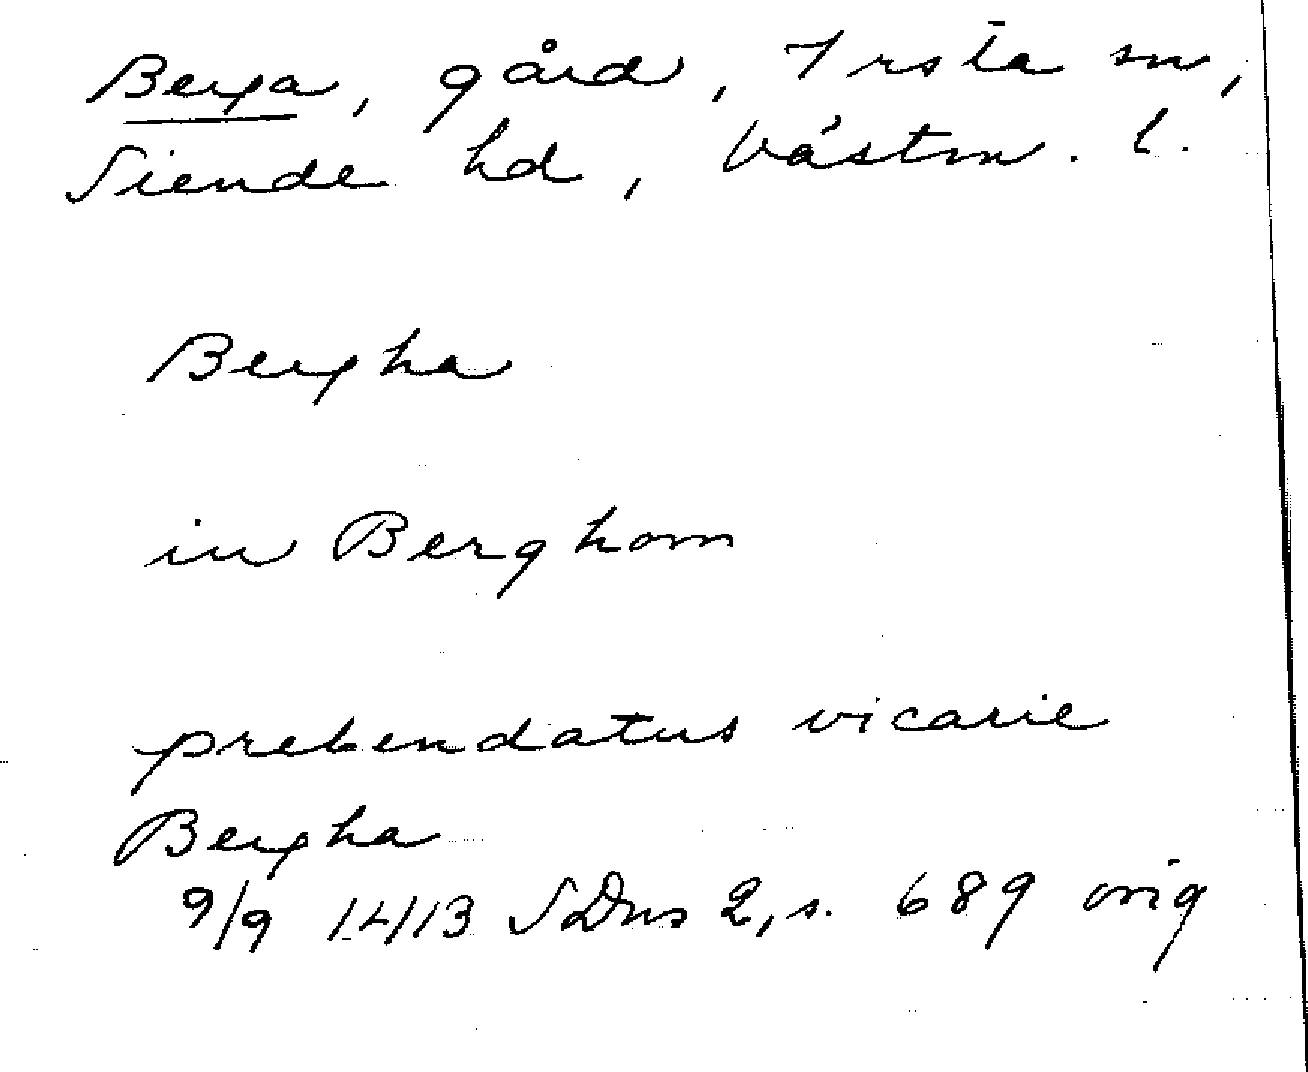 Berga, gård, Irsta sn,
Siende hd, Västm. l.
Bergha
in Berghom
prebendatus vicarie
Bergha
9/9 1413 SDns 2, s. 689 orig